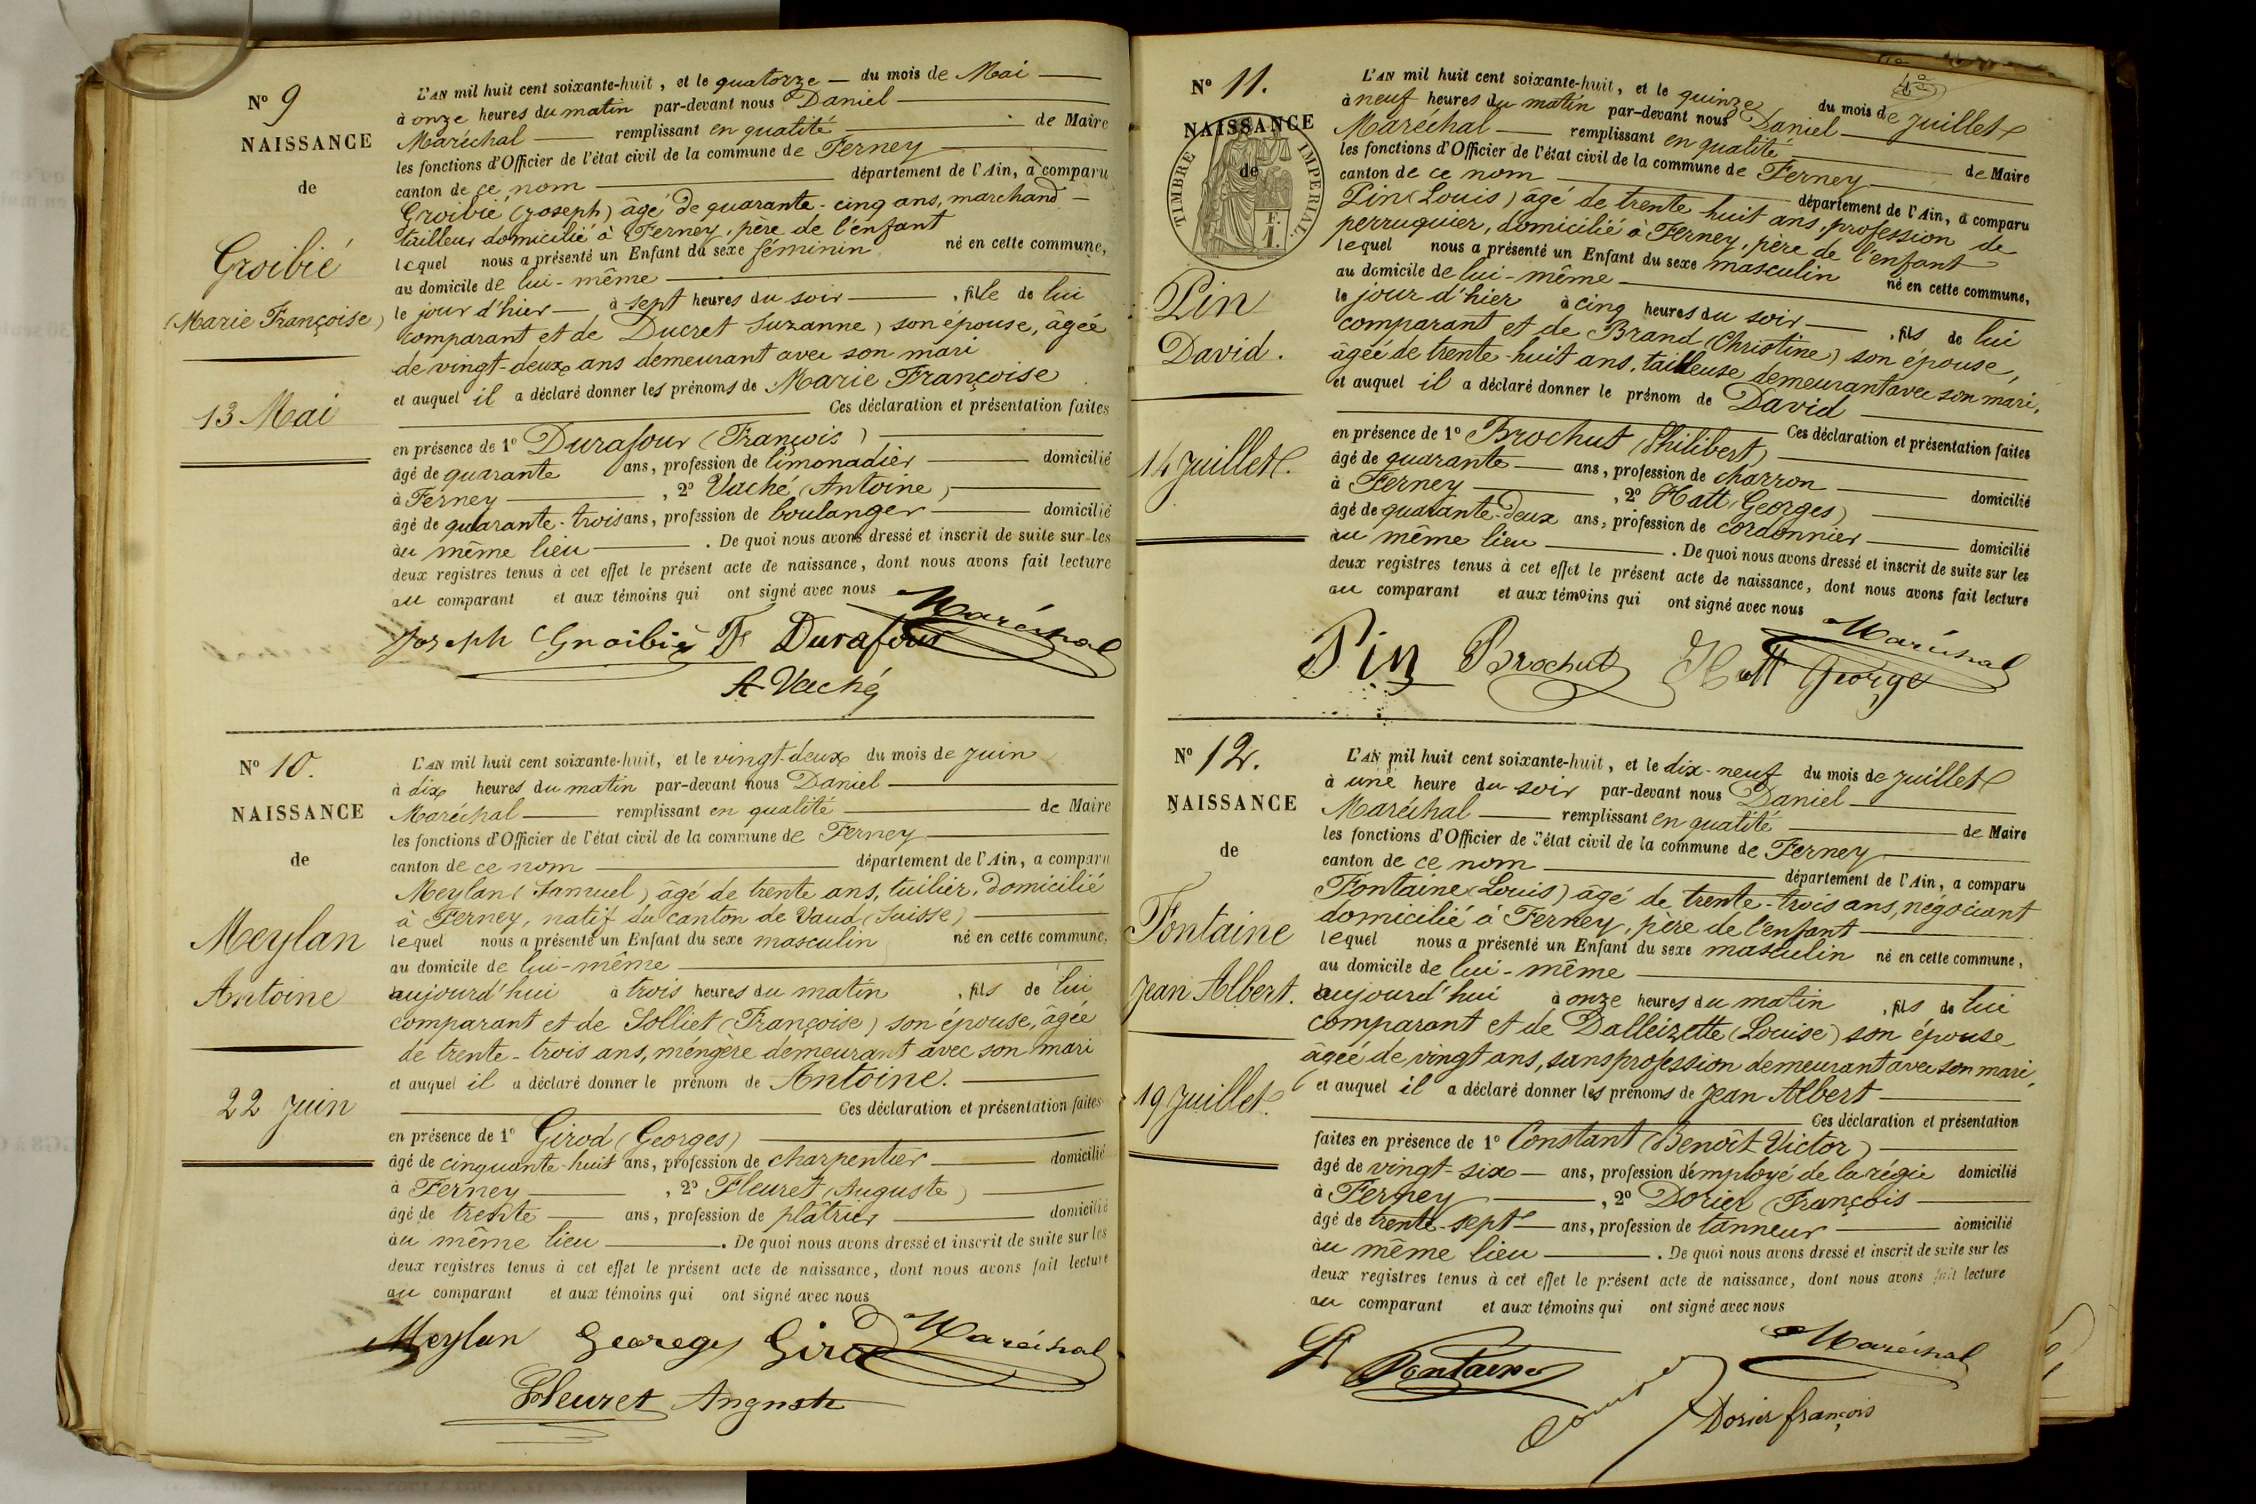 N° 9
NAISSANCE
de
Groibié
(Marie Françoise)
13 Mai
L'AN mil huit cent soixante-huit, et le quatorze — du mois de Mai —
à onze heures du matin par-devant nous Daniel —
Maréchal — remplissant en qualité — de Maire
les fonctions d'Officier de l'état civil de la commune de Ferney —
canton de ce nom — département de l'Ain, a comparu
Groibié (Joseph) âgé de quarante-cinq ans, marchand —
tailleur domicilié à Ferney, père de l'enfant
lequel nous a présenté un Enfant du sexe féminin né en cette commune,
au domicile de lui-même —
le jour d'hier — à sept heures du soir —, fille de lui
comparant et de Ducret Suzanne) son épouse, âgée
de vingt-deux ans demeurant avec son mari
et auquel il a déclaré donner les prénoms de Marie Françoise
— Ces déclaration et présentation faites
en présence de 1° Durafour (François) —
âgé de quarante ans, profession de limonadier — domicilié
à Ferney —, 2° Vaché (Antoine) —
âgé de quarante-trois ans, profession de boulanger — domicilié
au même lieu —. De quoi nous avons dressé et inscrit de suite sur les
deux registres tenus à cet effet le présent acte de naissance, dont nous avons fait lecture
au comparant et aux témoins qui ont signé avec nous
Maréchal
Joseph Groibié F Durafour
A Vaché
N° 10.
NAISSANCE
de
Meylan
Antoine
22 Juin
L'AN mil huit cent soixante-huit, et le vingt-deux du mois de Juin
à dix heures du matin par-devant nous Daniel —
Maréchal — remplissant en qualité — de Maire
les fonctions d'Officier de l'état civil de la commune de Ferney —
canton de ce nom — département de l'Ain, a comparu
Meylan (Samuel) âgé de trente ans, tuilier, domicilié
à Ferney, natif du canton de Vaud (Suisse) —
lequel nous a présenté un Enfant du sexe masculin né en cette commune,
au domicile de lui-même —
aujourd'hui à trois heures du matin, fils de lui
comparant et de Solliet (Françoise) son épouse, âgée
de trente-trois ans, méngère demeurant avec son mari
et auquel il a déclaré donner le prénom de Antoine. —
— Ces déclaration et présentation faites
en présence de 1° Girod (Georges) —
âgé de cinquante-huit ans, profession de charpentier — domicilié
à Ferney —, 2° Fleuret (Auguste) —
âgé de trente — ans, profession de plâtrier — domicilié
au même lieu —. De quoi nous avons dressé et inscrit de suite sur les
deux registres tenus à cet effet le présent acte de naissance, dont nous avons fait lecture
au comparant et aux témoins qui ont signé avec nous
Meylan Georges Girod Maréchal
Fleuret Auguste
N° 11.
NAISSANCE
de
TIMBRE IMPERIAL
F.
1.
Pin
David.
14 Juillet.
L'AN mil huit cent soixante-huit, et le quinze du mois de Juillet
à neuf heures du matin par-devant nous Daniel —
Maréchal — remplissant en qualité — de Maire
les fonctions d'Officier de l'état civil de la commune de Ferney —
canton de ce nom — département de l'Ain, a comparu
Pin (Louis) âgé de trente huit ans, profession de
perruquier, domicilié à Ferney, père de l'enfant
lequel nous a présenté un Enfant du sexe masculin né en cette commune,
au domicile de lui-même —
le jour d'hier à cinq heures du soir —, fils de lui
comparant et de Brand (Christine) son épouse,
âgée de trente-huit ans, tailleuse demeurant avec son mari,
et auquel il a déclaré donner le prénom de David —
— Ces déclaration et présentation faites
en présence de 1° Brochut (Philibert) —
âgé de quarante — ans, profession de charron — domicilié
à Ferney —, 2° Hatt (Georges) —
âgé de quarante-deux ans, profession de cordonnier — domicilié
au même lieu —. De quoi nous avons dressé et inscrit de suite sur les
deux registres tenus à cet effet le présent acte de naissance, dont nous avons fait lecture
au comparant et aux témoins qui ont signé avec nous
Maréchal
Pin Brochut Hatt George
N° 12.
NAISSANCE
de
Fontaine
Jean Albert.
19 Juillet.
L'AN mil huit cent soixante-huit, et le dix-neuf du mois de Juillet
à une heure du soir par-devant nous Daniel —
Maréchal — remplissant en qualité — de Maire
les fonctions d'Officier de l'état civil de la commune de Ferney —
canton de ce nom — département de l'Ain, a comparu
Fontaine (Louis) âgé de trente-trois ans, négociant
domicilié à Ferney, père de l'enfant —
lequel nous a présenté un Enfant du sexe masculin né en cette commune,
au domicile de lui-même —
aujourd'hui à onze heures du matin, fils de lui
comparant et de Dalleizette (Louise) son épouse
âgée de vingt ans, sans profession demeurant avec son mari,
et auquel il a déclaré donner les prénoms de Jean Albert —
— Ces déclaration et présentation
faites en présence de 1° Constant (Benoît Victor) —
âgé de vingt-six — ans, profession d'employé de la régie domicilié
à Ferney —, 2° Dorier (François —
âgé de trente-sept — ans, profession de tanneur — domicilié
au même lieu —. De quoi nous avons dressé et inscrit de suite sur les
deux registres tenus à cet effet le présent acte de naissance, dont nous avons fait lecture
au comparant et aux témoins qui ont signé avec nous
Maréchal
Fontaine
Dorier françois